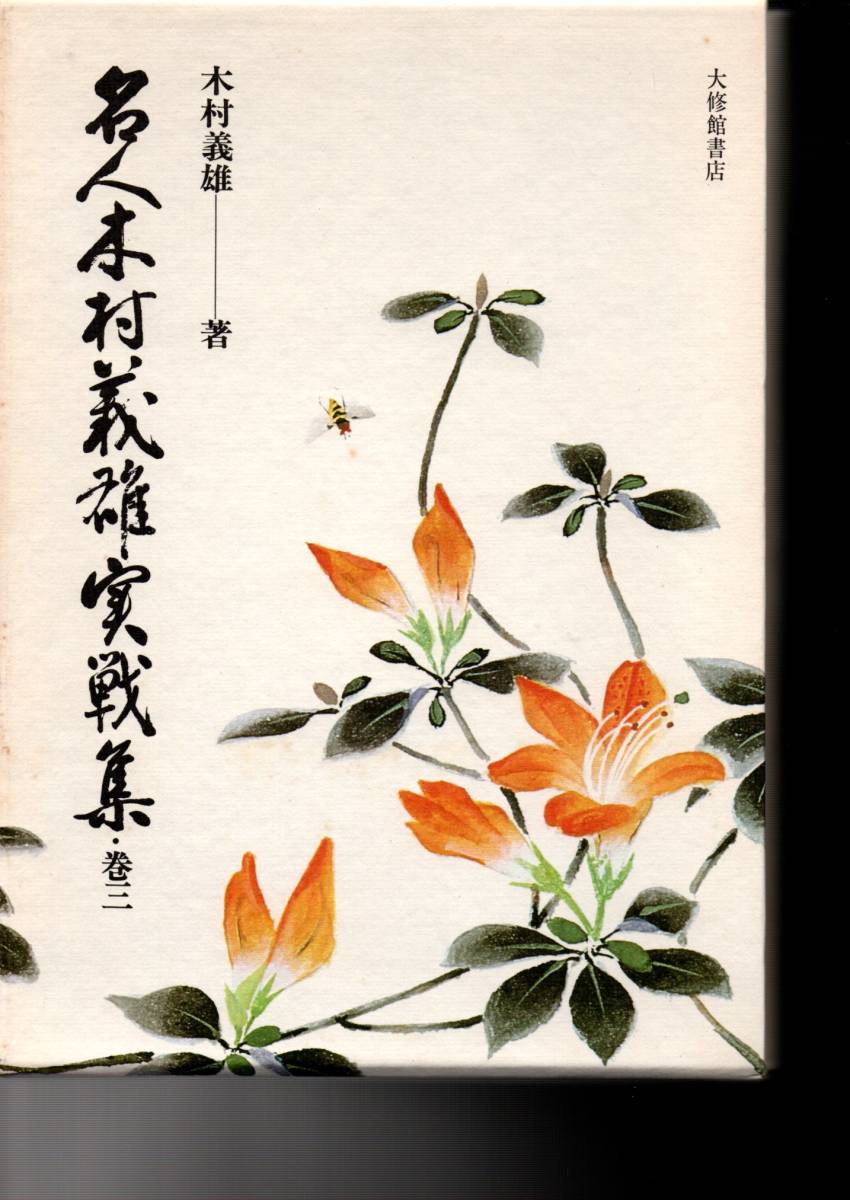 大修館書店
木村義雄――著
名人木村義雄実戦集・巻三